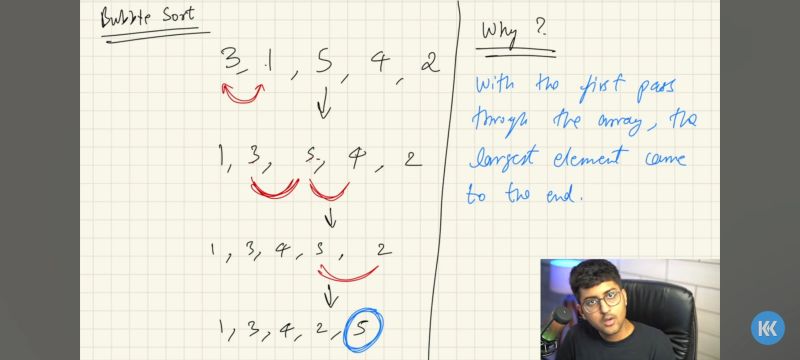 Bubble Sort
3, 1, 5, 4, 2
1, 3, 5, 4, 2
1, 3, 4, 5, 2
1, 3, 4, 2, 5
Why?
With the first pass
through the array, the
largest element came
to the end.